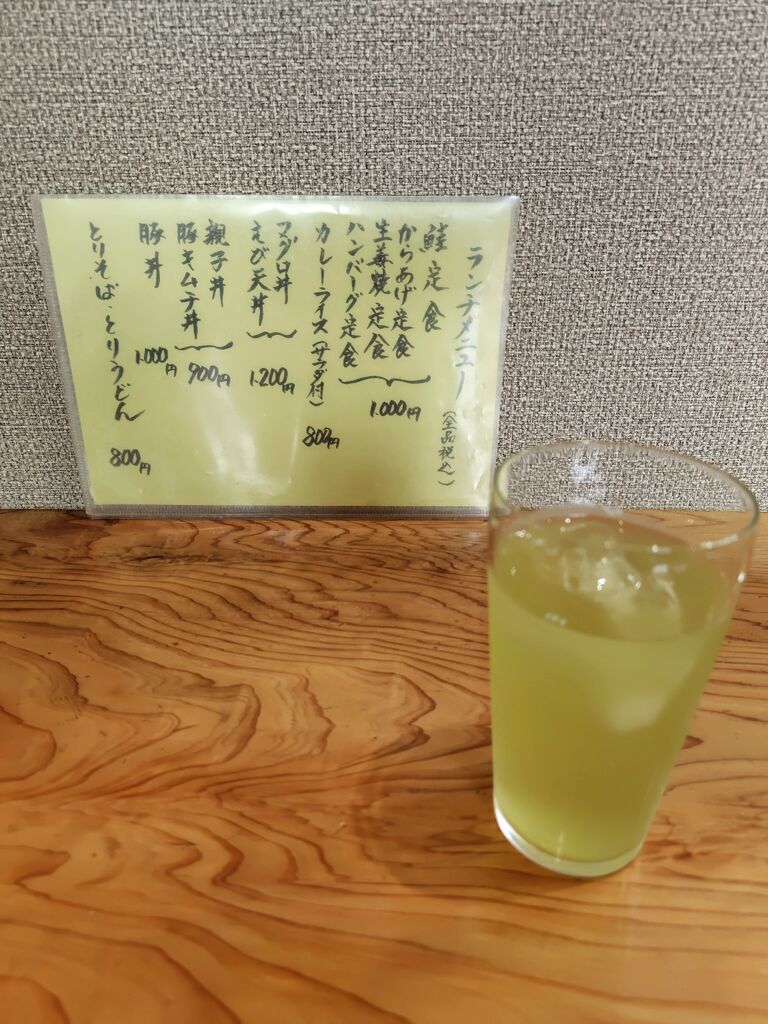 ランチメニュー(全品税込)
鮭定食
からあげ定食
生姜焼定食
ハンバーグ定食
1.000円
カレーライス(サラダ付)
800円
マグロ丼
えび天丼
1.200円
親子丼
豚キムチ丼
900円
豚丼
1.000円
とりそば・とりうどん
800円